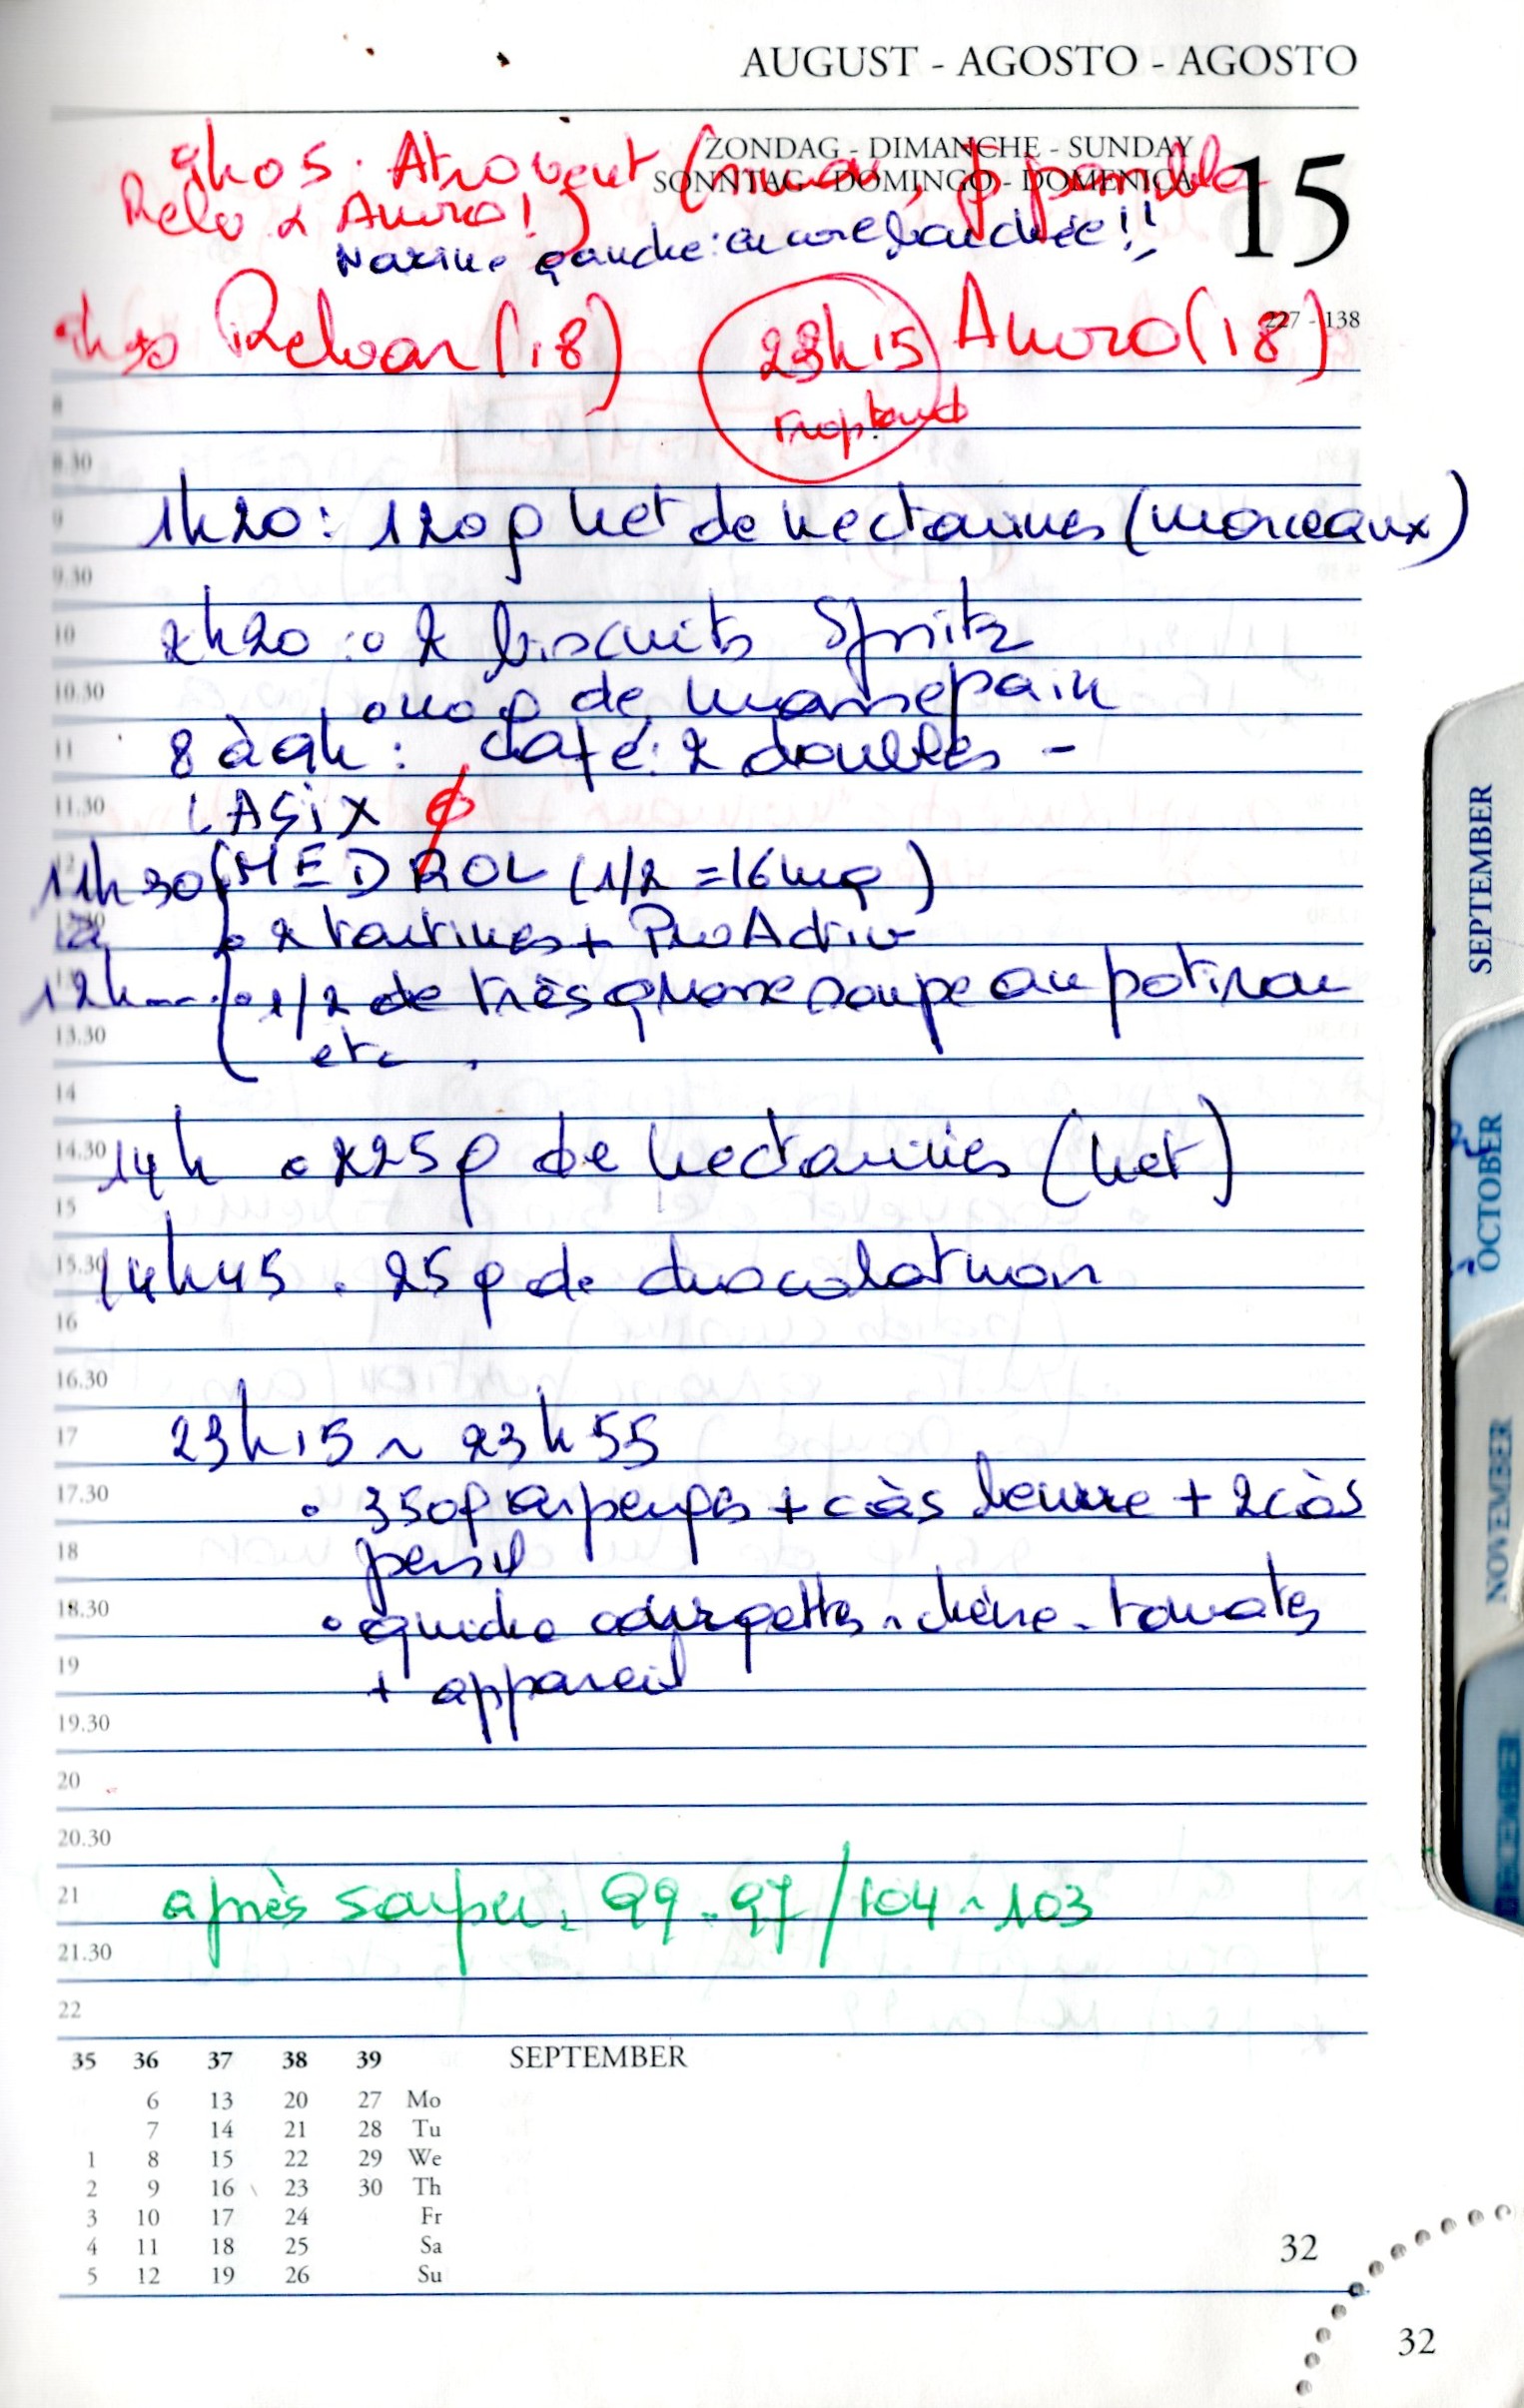 AUGUST - AGOSTO - AGOSTO
ZONDAG - DIMANCHE - SUNDAY
SONNTAG - DOMINGO - DOMENICA
15
227 - 138
9h05. Atrovent
Relv & Anoro!
Narine gauche: encore bouchée!!
9h30 Relvar (18) 23h15 Anoro (18)
Trop tard
8
8.30
9
1h20: 120g net de nectarines (morceaux)
9.30
10
2h20: 2 biscuits Spritz
10.30
110g de massepain
11
8 à 9h: café: 2 doubles -
11.30
LASIX ϕ
12
11h30 MEDROL (1/2 = 16mg)
à
2 tartines + ProActiv
12h 1/2 de très grosse soupe au potiron
13.30
etc
14
14.30
14h 225g de nectarines (net)
15
15.30
14h45. 25g de chocolat noir
16
16.30
17
23h15 ~ 23h55
17.30
350g asperges + càs beurre + 2càs
18
persil
18.30
quiche courgettes - chèvre - tomates
19
+ appareil
19.30
20
20.30
21
après souper. 99-97/104-103
21.30
22
35 36 37 38 39 SEPTEMBER
6 13 20 27 Mo
7 14 21 28 Tu
1 8 15 22 29 We
2 9 16 23 30 Th
3 10 17 24 Fr
4 11 18 25 Sa
5 12 19 26 Su
32
32
SEPTEMBER
OCTOBER
NOVEMBER
DECEMBER